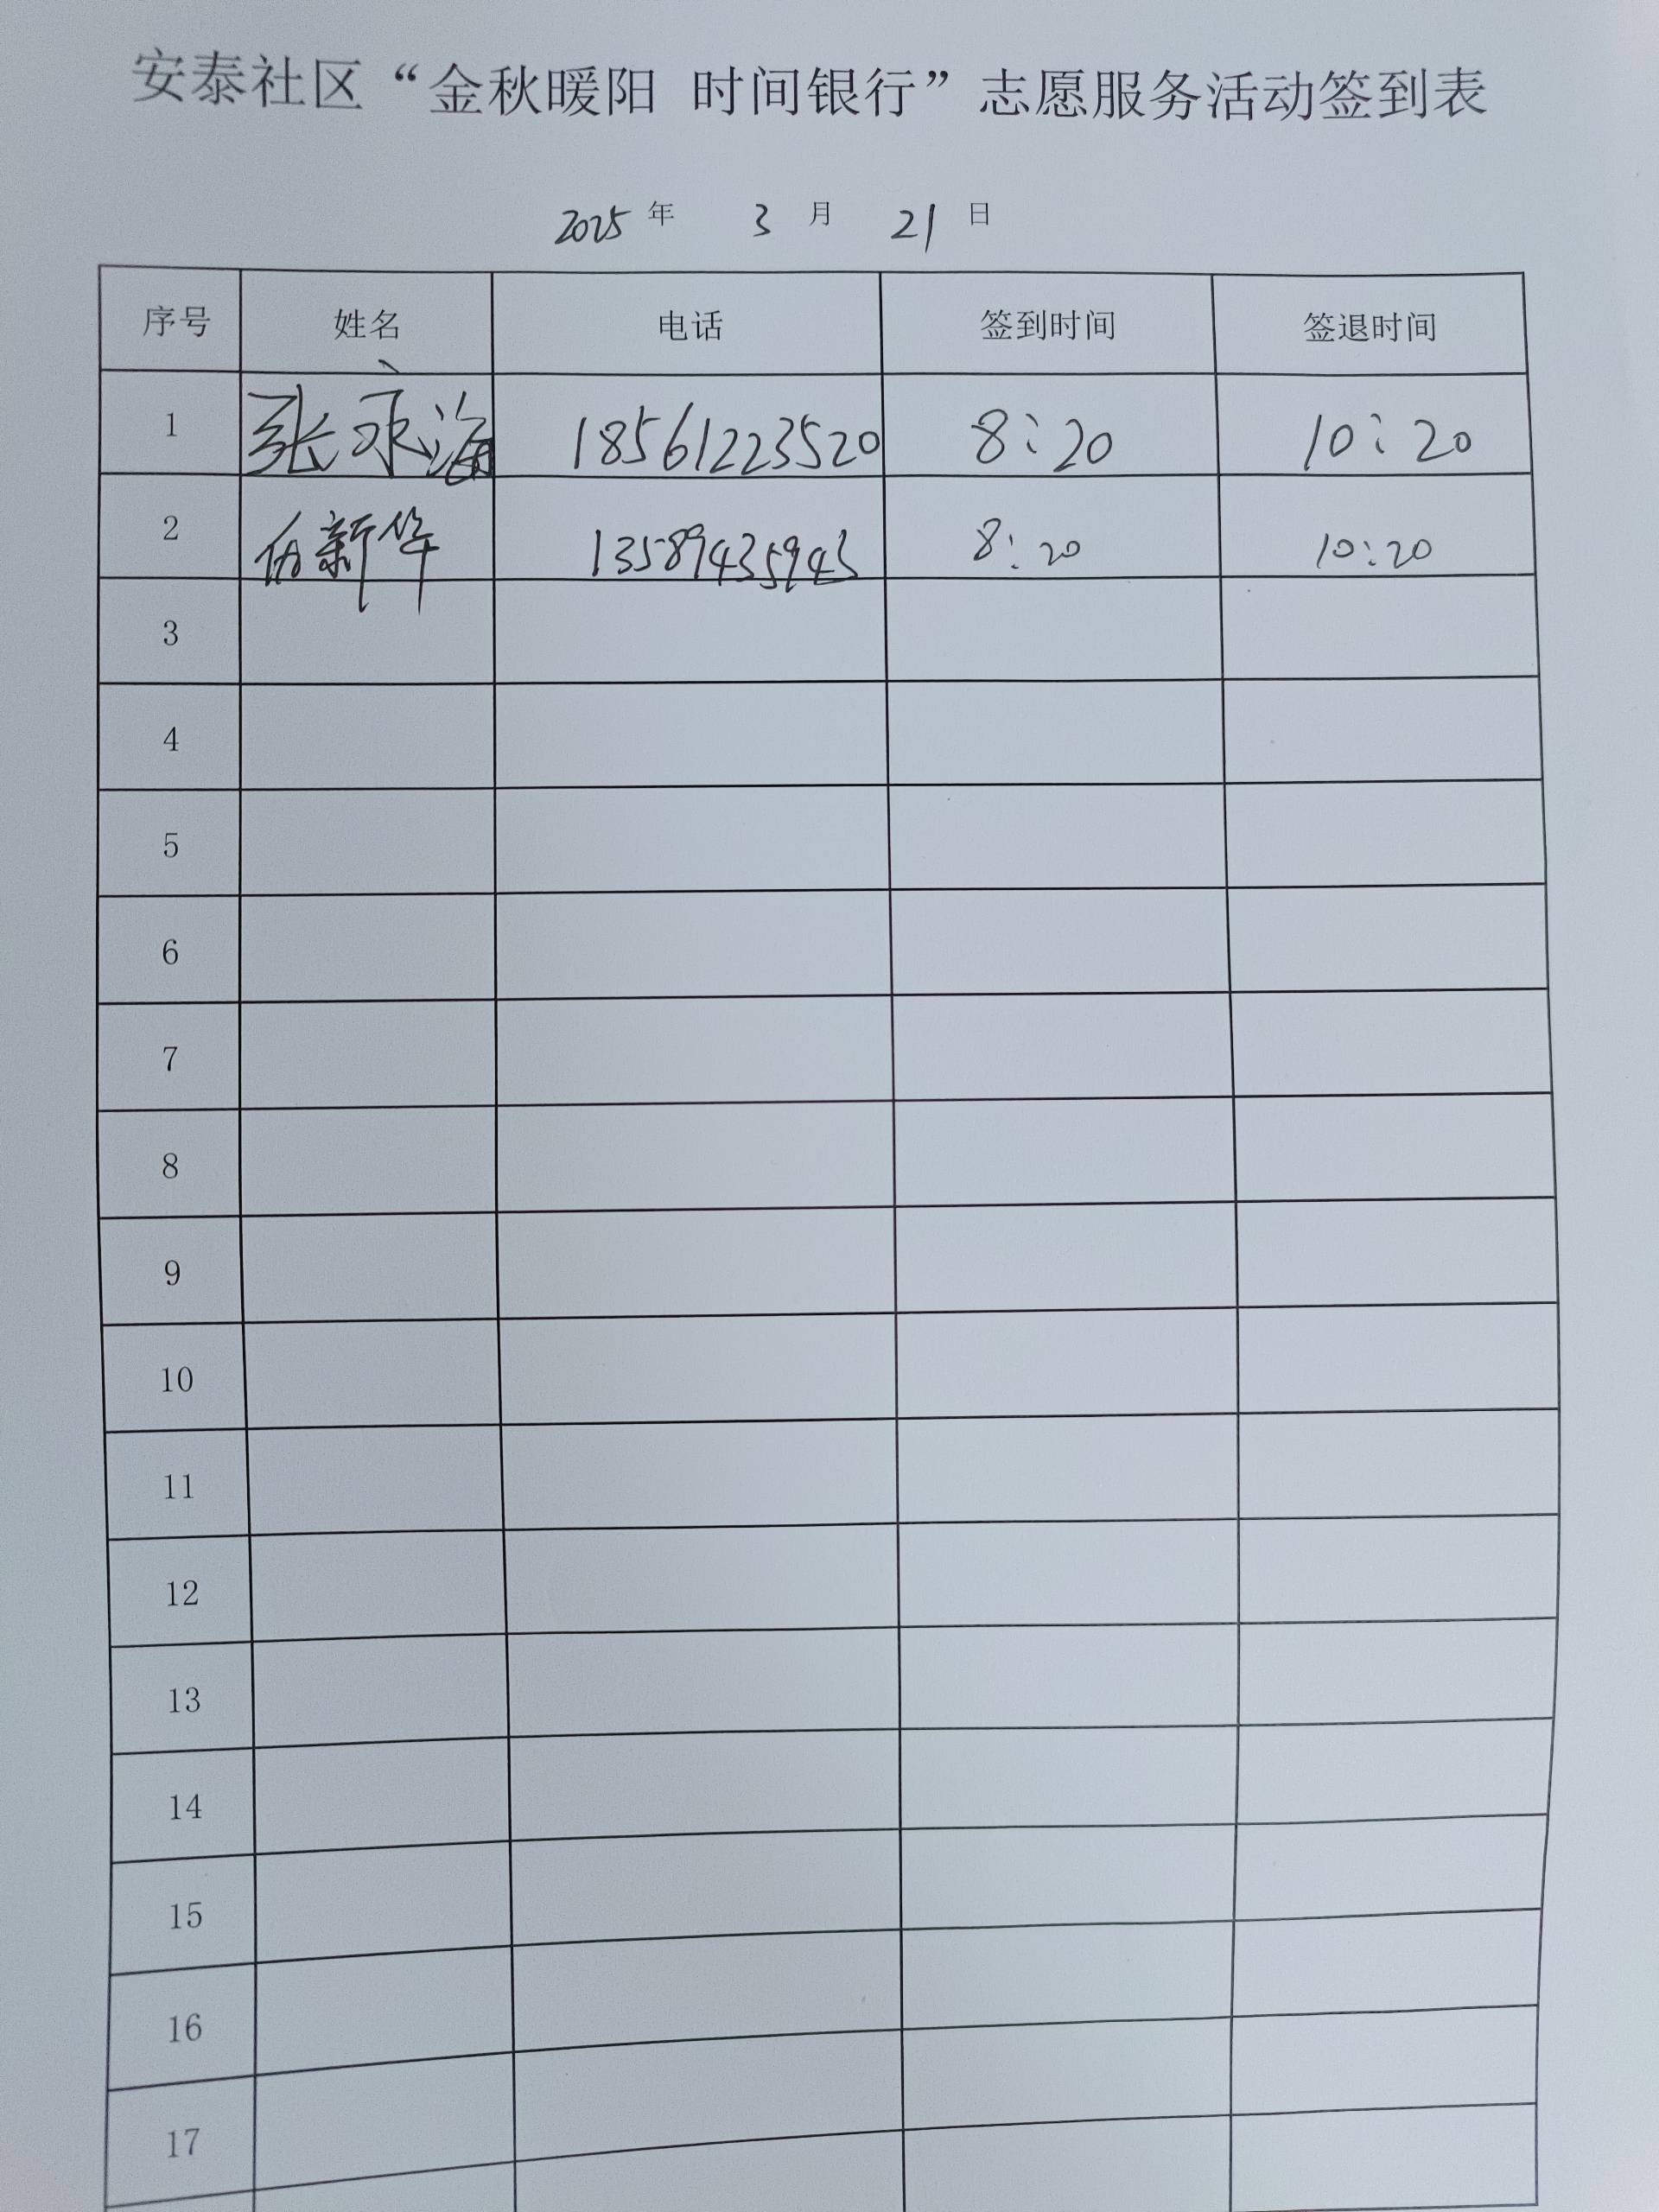 安泰社区“金秋暖阳 时间银行”志愿服务活动签到表
2025 年 3 月 21 日
序号 姓名 电话 签到时间 签退时间
1 张永海 18561223520 8:20 10:20
2 新华 13589435943 8:20 10:20
3
4
5
6
7
8
9
10
11
12
13
14
15
16
17